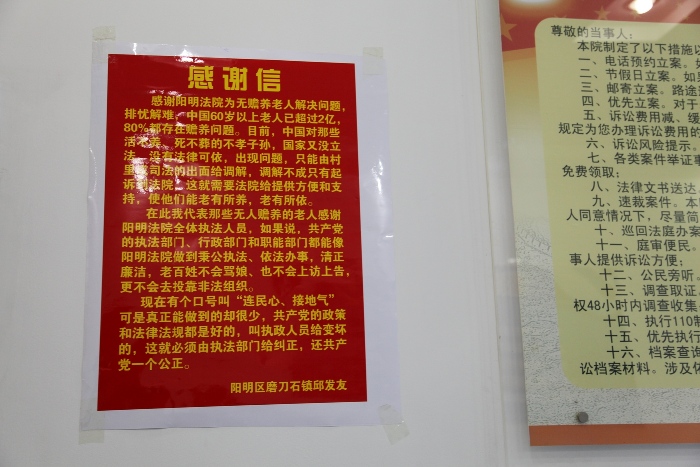 感谢信
感谢阳明法院为无赡养老人解决问题，
排忧解难，中国60岁以上老人已超过2亿，
80%都存在赡养问题。目前，中国对那些
活不养、死不葬的不孝子孙，国家又没立
法，没有法律可依，出现问题，只能由村
里或司法的出面给调解，调解不成只有起
诉到法院，这就需要法院给提供方便和支
持，使他们能老有所养，老有所依。
在此我代表那些无人赡养的老人感谢
阳明法院全体执法人员，如果说，共产党
的执法部门、行政部门和职能部门都能像
阳明法院做到秉公执法、依法办事，清正
廉洁，老百姓不会骂娘、也不会上访上告，
更不会去投靠非法组织。
现在有个口号叫“连民心、接地气”
可是真正能做到的却很少，共产党的政策
和法律法规都是好的，叫执政人员给变坏
的，这就必须由执法部门给纠正，还共产
党一个公正。
阳明区磨刀石镇邱发友
尊敬的当事人：
本院制定了以下措施以
一、电话预约立案。如
二、节假日立案。如果
三、邮寄立案。路途
四、优先立案。对于
五、诉讼费用减、缓
规定为您办理诉讼费用的
六、诉讼风险提示。
七、各类案件举证事
免费领取；
八、法律文书送达
九、速裁案件。本
人同意情况下，尽量简
十、巡回法庭办案
十一、庭审便民。
事人提供诉讼方便；
十二、公民旁听。
十三、调查取证。
权48小时内调查收集
十四、执行110制
十五、优先执行
十六、档案查询
讼档案材料。涉及休